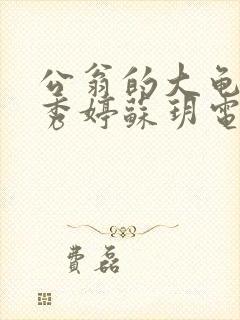 公翁的大龟
秀婷蘇玥電
費磊